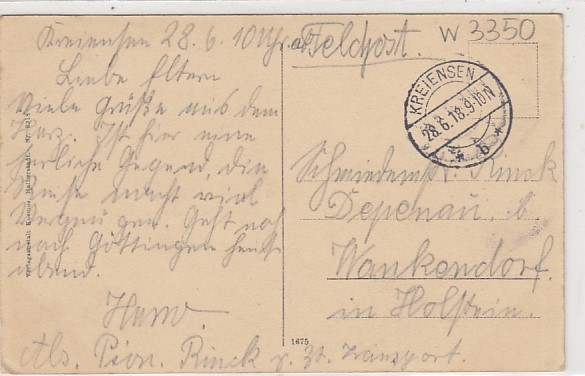 Kreiensen 28.6. 10 Uhr ab.
Liebe Eltern
Viele Grüße aus dem
Harz. Ist hier eine
herliche Gegend, die
Reise macht viel
Vergnügen. Geht noch
nach Göttingen heute
abend.
Hans.
Abs. Pion. Rinck z. Zt. Transport.
Feldpost.
W 3350
KREIENSEN
28.6.18.9-10N
* b *
Schmiedemstr. Rinck
Depenau b.
Wankendorf.
in Holstein.
1675